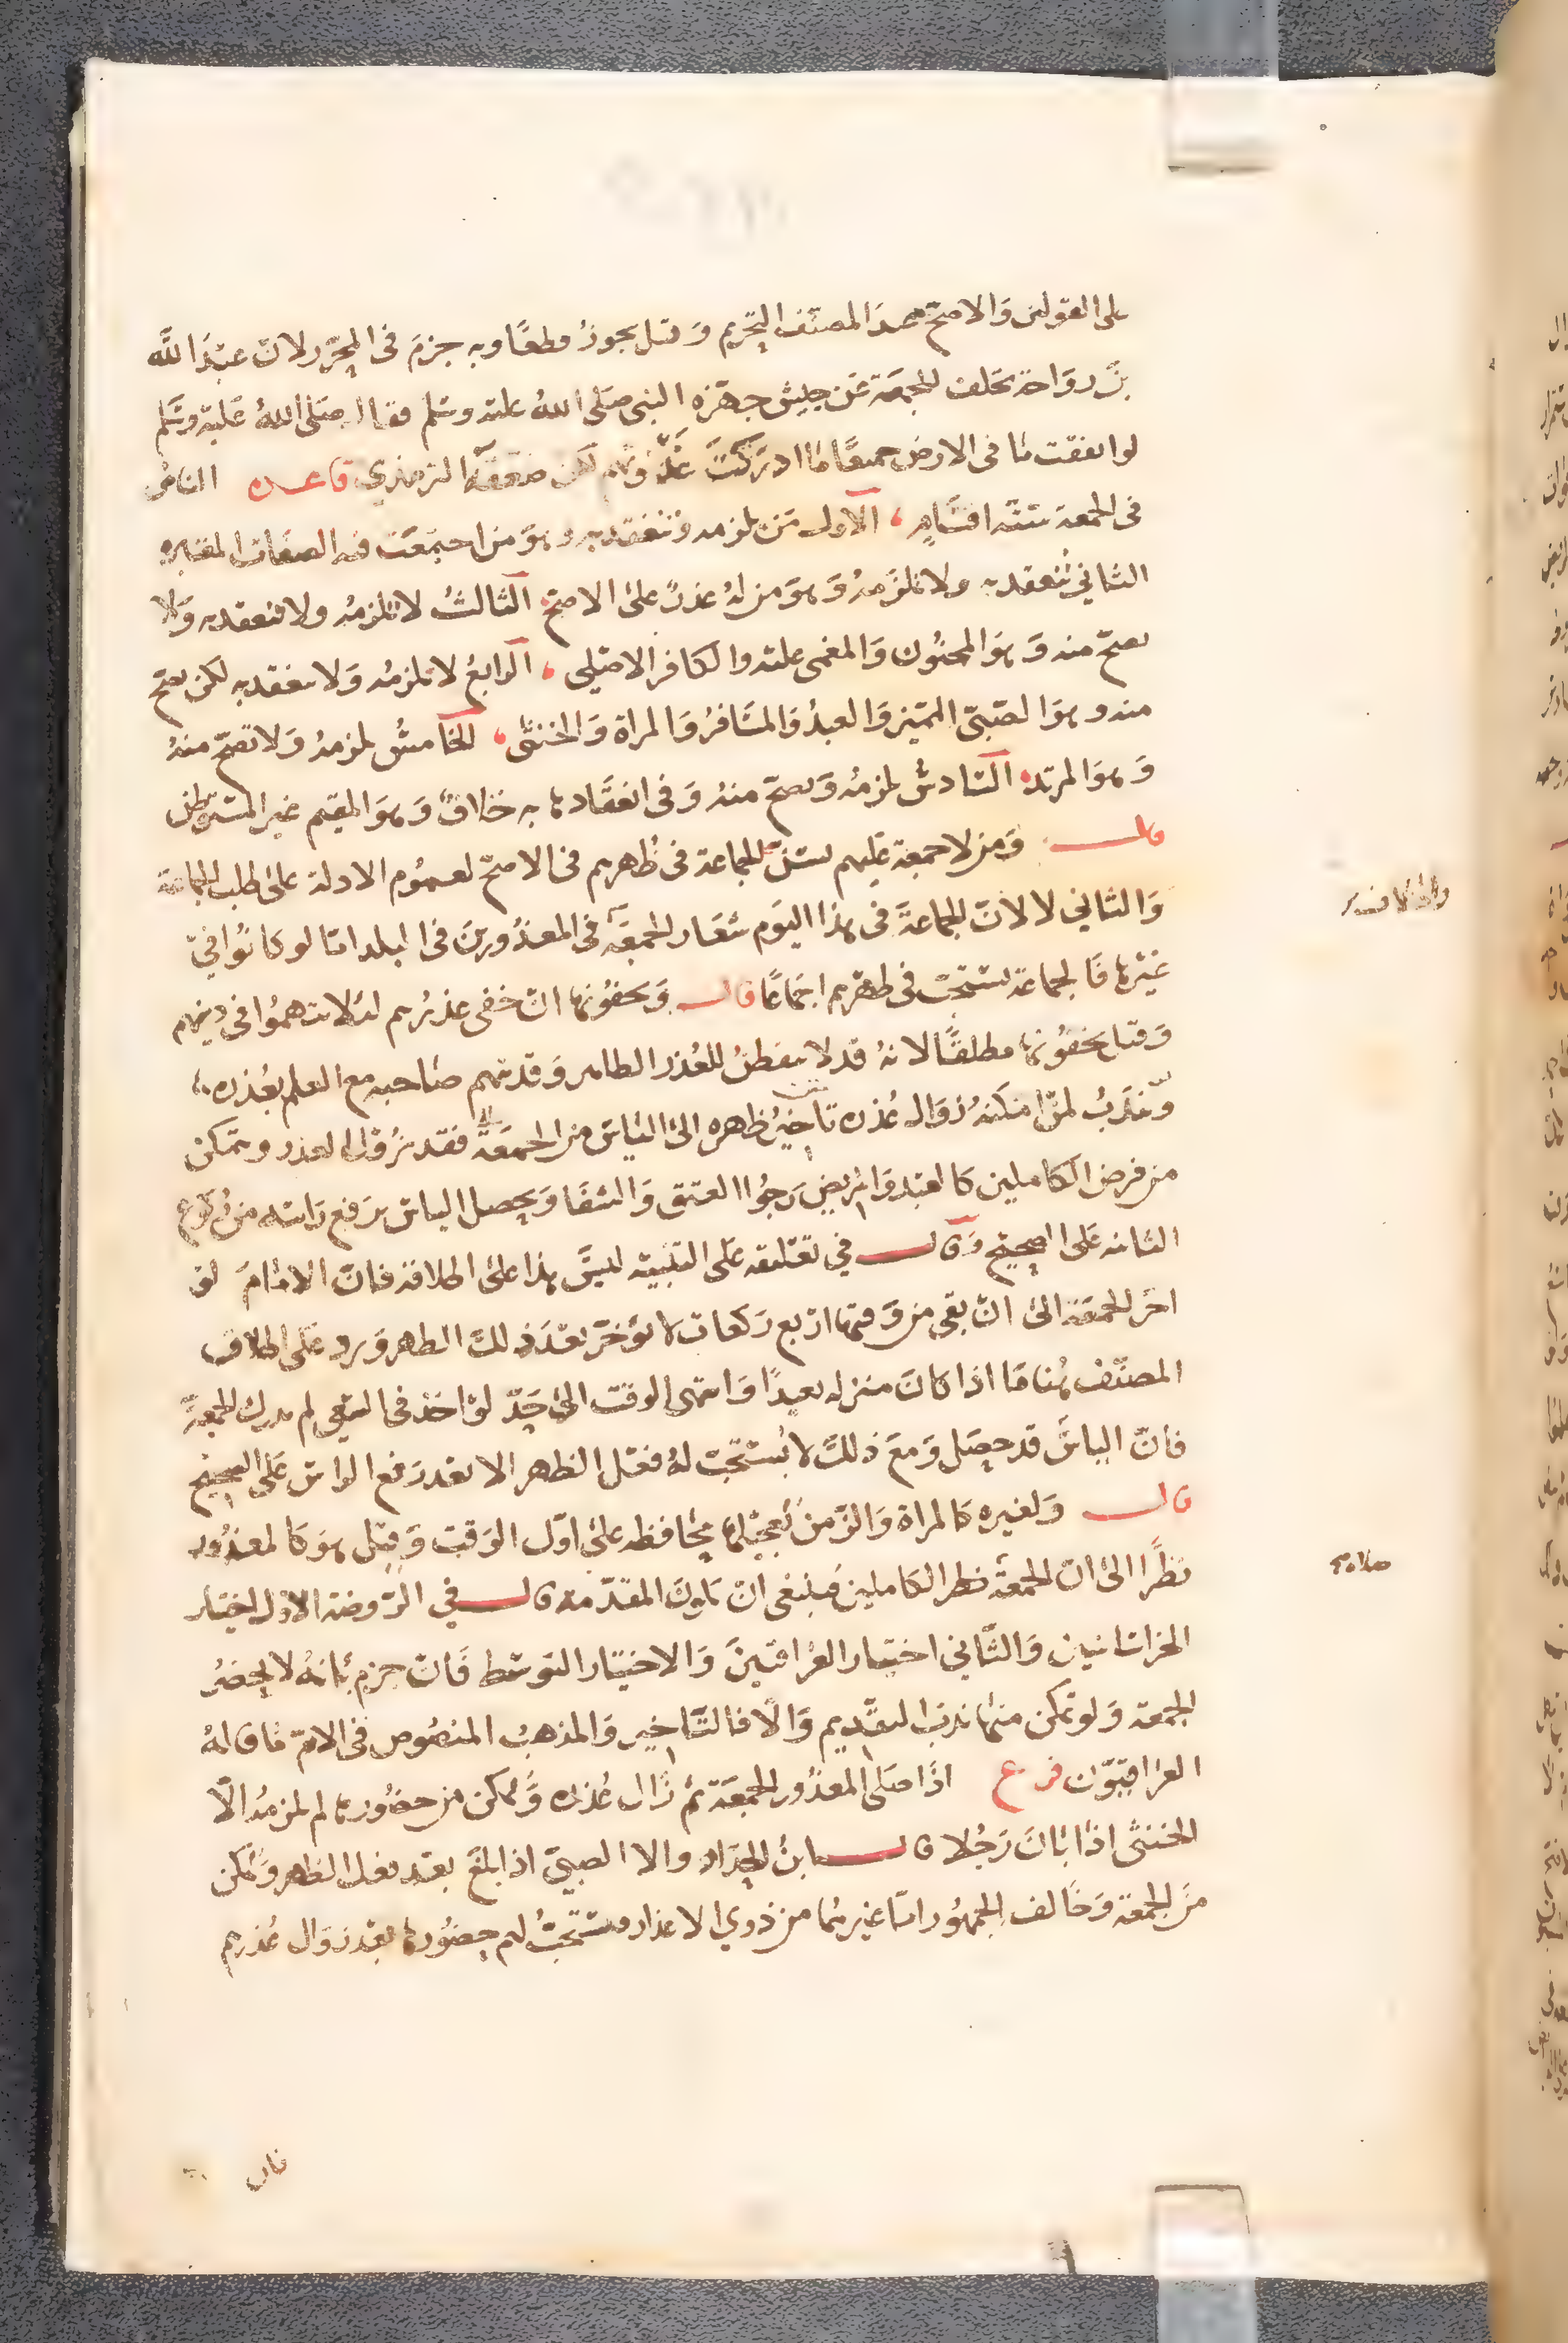 على القولين والاصح عند المصنف التحريم وقيل يجوز قطعًا وبه جزم فى المحرر لان عبدَ الله
بن رواحة تخلف للجمعة عن جيش جهزه النبى صلى الله عليه وسلم فقال صلى الله عليه وسلم
لو انفقت ما فى الارض جميعًا ما ادركت غدوتهم لكن ضعفه الترمذي قاعده الناس
فى الجمعة ستة اقسام الاول من تلزمه وتنعقد به وهو من اجتمعت فيه الصفات المعتبره
الثاني تنعقد به ولا تلزمه وهو من له عذر على الاصح الثالث لا تلزمه ولا تنعقد به ولا
تصح منه وهو المجنون والمغمى عليه والكافر الاصلي الرابع لا تلزمه ولا تنعقد به لكن تصح
منه وهو الصبىّ المميز والعبد والمسافر والمراة والخنثى الخامس تلزمه ولا تصح منه
وهو المرتد السادس تلزمه وتصح منه وفى انعقادها به خلاف وهو المقيم غير المستوطن
قال ومن لا جمعة عليهم تسن الجماعة فى ظهرهم فى الاصح لعموم الادلة على طلب الجماعة
والثاني لا لان الجماعة فى هذا اليوم شعار الجمعة فى المعذورين فى البلد اما لو كانوا في
غيرها فالجماعة تستحب فى ظهرهم اجماعًا قال ويخفونها ان خفى عذرهم لئلا يتهموا فى دينهم
وقيل يخفونها مطلقًا لانه قد لا يفطن للعذر الظاهر وقد يتهم صاحبه مع العلم بعذره
وندب لمن امكنه زوال عذره تاخير ظهره الى الياس من الجمعة فقد يزول العذر ويتمكن
من فرض الكاملين كالعبد والمريض رجوا العتق والشفا ويحصل الياس برفع راسه من ركوع
الثانيه على الصحيح وقال في تعليقه على التنبيه ليس هذا على اطلاقه فان الامام لو
اخر الجمعة الى ان بقى من وقتها اربع ركعات لا يؤخر بعد ذلك الظهر ويرد على اطلاق
المصنف هنا ما اذا كان منزله بعيدًا وانتهى الوقت الى حدّ لو اخذ فى السعي لم يدرك الجمعة
فان الياس قد حصل ومع ذلك لا يستحب له فعل الظهر الا بعد رفع الراس على الصحيح
قال ولغيره كالمراة والزمن تعجيلها محافظة على اوّل الوقت وقيل هو كالمعذور
نظرًا الى ان الجمعة ظهر الكاملين فينبغى ان تكون المقدمة قال في الروضة الاول اختيار
الخراسانيين والثاني اختيار العراقيين والاختيار التوسط فان جزم بانه لا يحضر
الجمعة ولو تمكن منها ندب التقديم والا فالتاخير والمذهب المنصوص فى الام ما قاله
العراقيون فرع اذا صلى المعذور الجمعة ثم زال عذره وتمكن من حضورها لم تلزمه الا
الخنثى اذا بان رجلا قال ابن الحداد والا الصبي اذا بلغ بعد فعل الظهر وتمكن
من الجمعة وخالف الجمهور اما غيرهما من ذوي الاعذار فيستحب لهم حضورها بعد زوال عذرهم